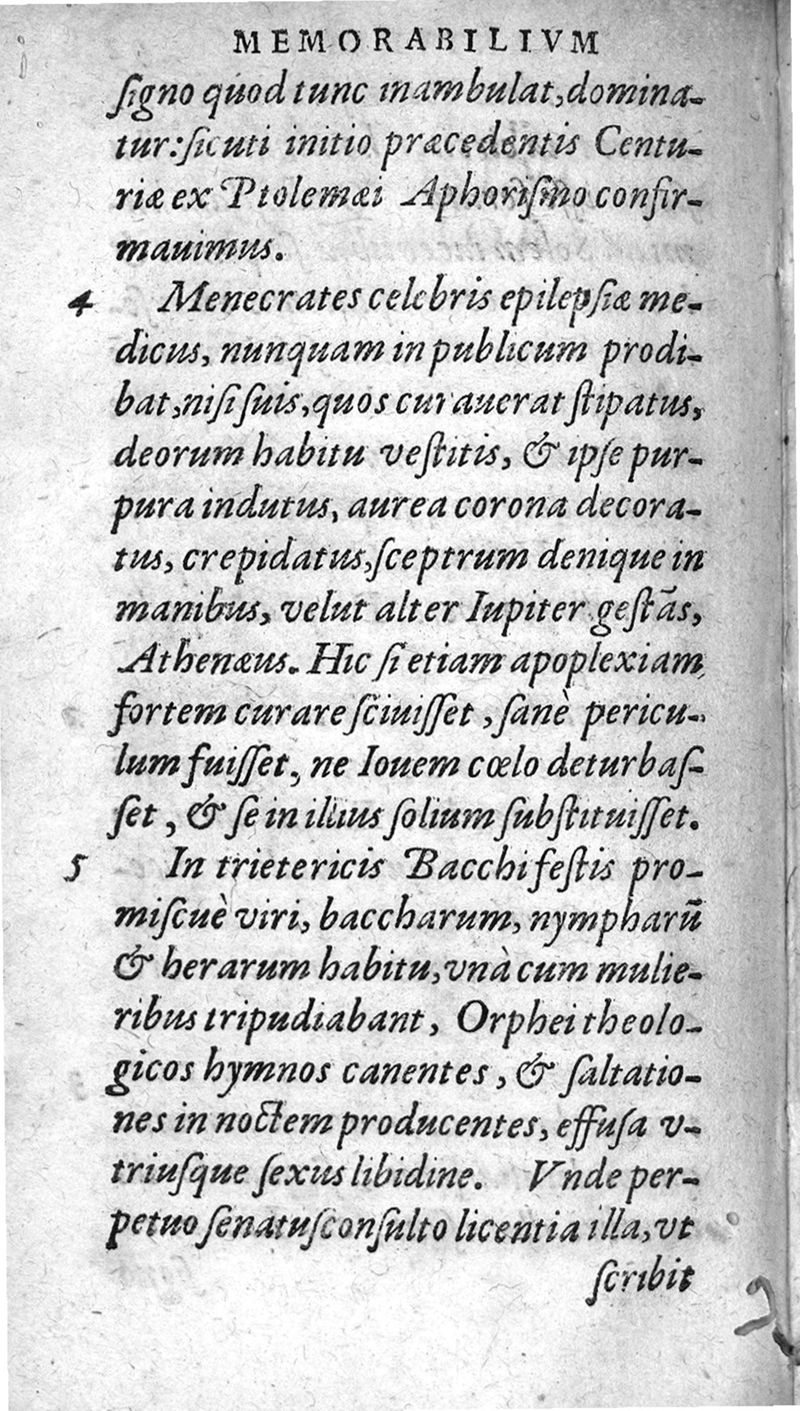 MEMORABILIVM
ſigno quod tunc inambulat, domina-
tur: ſicuti initio præcedentis Centu-
riæ ex Ptolemæi Aphoriſmo confir-
mauimus.
4 Menecrates celebris epilepſiæ me-
dicus, nunquam in publicum prodi-
bat, niſi ſuis, quos curauerat ſtipatus,
deorum habitu veſtitis, & ipſe pur-
pura indutus, aurea corona decora-
tus, crepidatus, ſceptrum denique in
manibus, velut alter Iupiter geſtãs,
Athenæus. Hic ſi etiam apoplexiam
fortem curare ſciuiſſet, ſanè pericu-
lum fuiſſet, ne Iouem cœlo deturbaſ-
ſet, & ſe in illius ſolium ſubſtituiſſet.
5 In trietericis Bacchi feſtis pro-
miſcuè viri, baccharum, nympharũ
& herarum habitu, vnà cum mulie-
ribus tripudiabant, Orphei theolo-
gicos hymnos canentes, & ſaltatio-
nes in noctem producentes, effuſa v-
triuſque ſexus libidine. Vnde per-
petuo ſenatuſconſulto licentia illa, vt
ſcribit